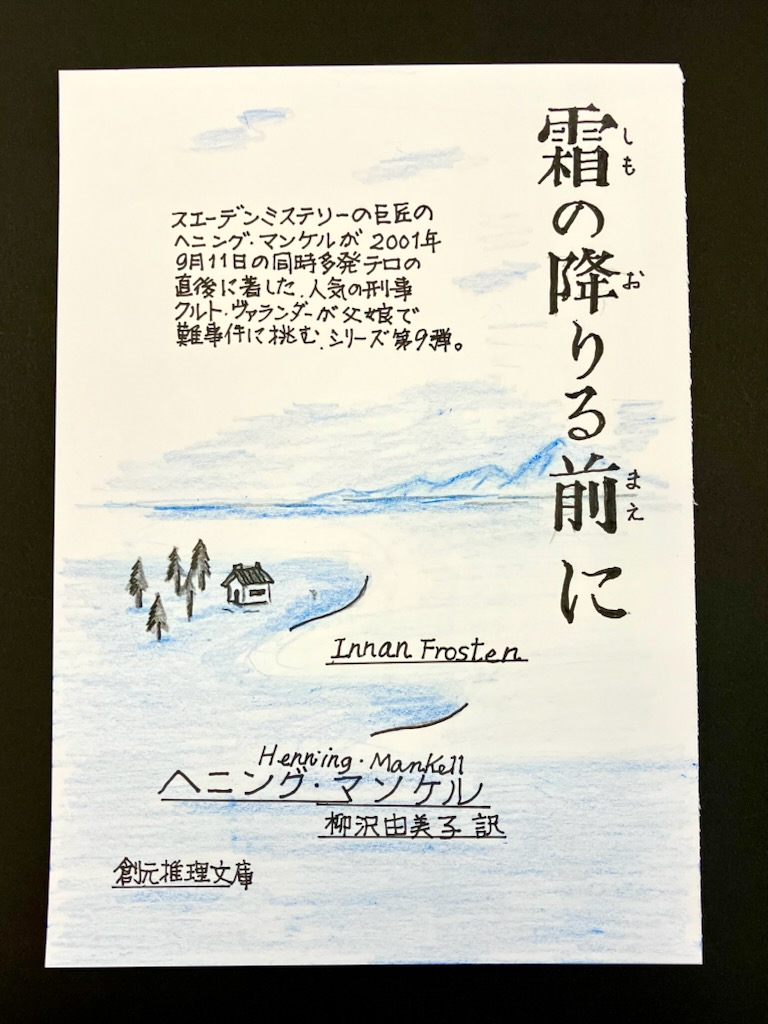 霜の降りる前に
しも
お
まえ
スエーデンミステリーの巨匠の
ヘニング・マンケルが2001年
9月11日の同時多発テロの
直後に著した、人気の刑事
クルト・ヴァランダーが父娘で
難事件に挑む、シリーズ第9弾。
Innan Frosten
Henning・Mankell
ヘニング・マンケル
柳沢由美子 訳
創元推理文庫